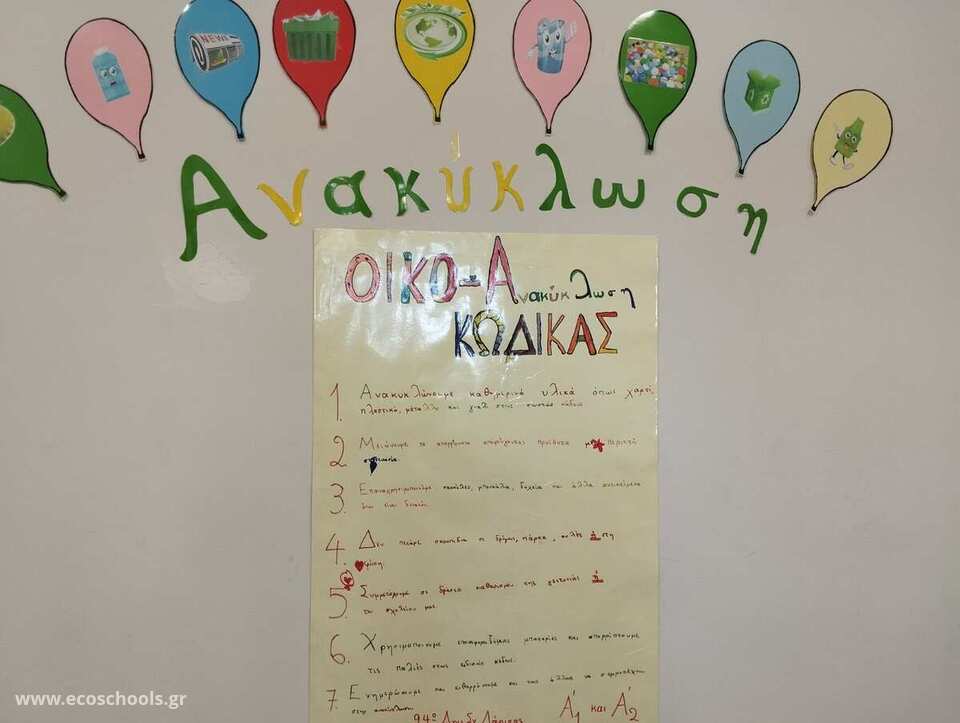 NEWS
Ανακύκλωση
ΟΙΚΟ-Ανακύκλωση
ΚΩΔΙΚΑΣ
1. Ανακυκλώνουμε καθημερινά υλικά όπως χαρτί,
πλαστικό, μέταλλο και γυαλί στους σωστούς κάδους
2 Μειώνουμε τα απορρίμματα αποφεύγοντας προϊόντα με περιττή
συσκευασία.
3. Επαναχρησιμοποιούμε σακούλες, μπουκάλια, δοχεία και άλλα αντικείμενα
όπου είναι δυνατόν.
4. Δεν πετάμε σκουπίδια σε δρόμους, πάρκα, αυλές ή στη
φύση.
5. Συμμετέχουμε σε δράσεις καθαρισμού της γειτονιάς ή
του σχολείου μας.
6. Χρησιμοποιούμε επαναφορτιζόμενες μπαταρίες και απορρίπτουμε
τις παλιές στους ειδικούς κάδους.
7. Ενημερώνουμε και ενθαρρύνουμε και τους άλλους να συμμετέχουν
στην ανακύκλωση.
94ο Δημ Σχ Λάρισας Α΄1 και Α΄2
www.ecoschools.gr